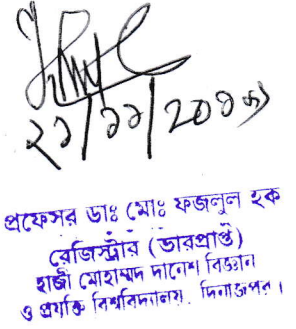 ২১/১১/২০১৯
প্রফেসর ডাঃ মোঃ ফজলুল হক
রেজিস্ট্রার (ভারপ্রাপ্ত)
হাজী মোহাম্মদ দানেশ বিজ্ঞান
ও প্রযুক্তি বিশ্ববিদ্যালয়, দিনাজপুর।